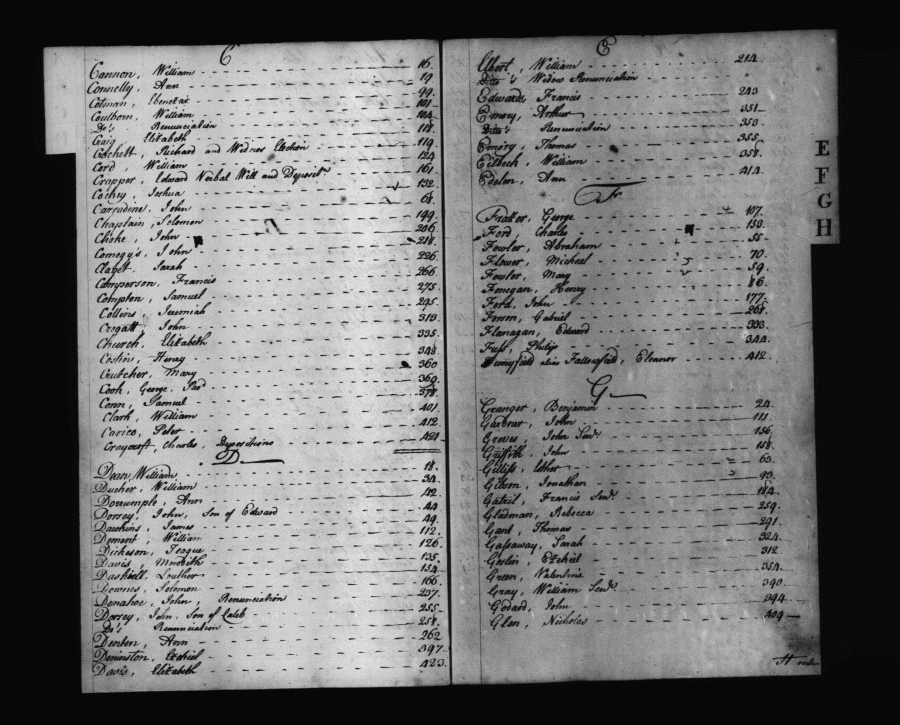 C
Cannon, William 16.
Connelly, Ann 19
Cotman, Ebenezar 99.
Coulborn, William 101
Do's Renunciation 104
Craig, Elizabeth 118.
Crockett, Richard and Widows Election 119.
Cord, William 124
Crapper, Edward Verbal Will and Deposit. 161
Cochey, Joshua 132.
Carradine, John 68.
Chaplain, Solomon 199.
Choke, John 206
Comegy's, John 218.
Clayat, Sarah 226.
Camperson, Francis 266.
Compton, Samuel 275.
Collins, Jeremiah 295.
Cregatt, John 313.
Church, Elizabeth 335.
Costin, Henry 348
Crutcher, Mary 360
Cook, George 369.
Conn, Samuel 378.
Clark, William 401.
Carico, Peter 412.
Craycroft, Charles, Depositions 421.
D
Dean, William 18.
Ducher, William 34.
Dorrumple, Ann 42
Dorsey, John, Son of Edward 44
Dawkins, James 49.
Dement, William 112.
Dickeson, Teague 126.
Davis, Meredith 135.
Dashiell, Louther 154
Downes, Solomon 166.
Donahoe, John, Renunciation 237.
Dorsey, John, Son of Caleb 255.
Do's Renunciation 258.
Denton, Ann 262
Deninston, Ezekiel 397.
Davis, Elizabeth 423.
E
Elbert, William 214.
Ditto's Widow Renunciation "
Edwards, Francis 243
Emory, Arthur 351.
Ditto's Renunciation 353.
Emory, Thomas 355.
Eilbeck, William 358.
Edelen, Ann 414.
F
Frazer, George 107.
Ford, Charles 153.
Fowler, Abraham 55
Flower, Michael 70.
Fowler, Mary 59.
Fonegan, Henry 86.
Ford, John 177.
Ferson, Gabriel 261.
Flanagan, Edward 333.
Fuss, Philip 344.
alias Fallowfield, Eleanor 412.
G
Granger, Benjamin 24.
Gardner, John 111.
Greves, John Senr. 136.
Griffith, John 158.
Gilliss, Esther 63.
Gibson, Jonathan 93.
Gatrell, Francis Senr. 184.
Gladman, Rebecca 259.
Gant, Thomas 291.
Gassaway, Sarah 324.
Goslin, Ezekiel 312
Green, Valentine 354.
Gray, William Senr. 390.
Godard, John 394
Glen, Nicholas 409
H
E
F
G
H